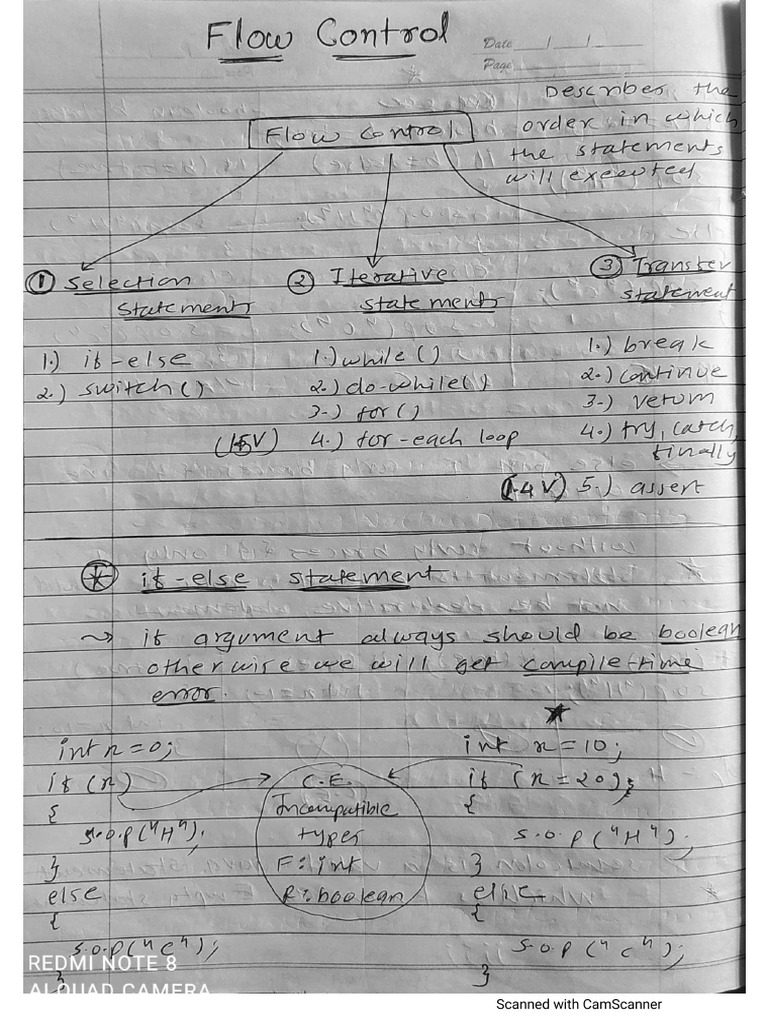 Flow Control
Date / /
Page
Describes the
order in which
the statements
will executed
Flow control
① Selection
statements
1.) if-else
2.) switch()
② Iterative
statements
1.) while ()
2.) do-while()
3.) for ()
(1.5V) 4.) for-each loop
③ Transfer
statement
1.) break
2.) continue
3.) return
4.) try, catch,
finally
(1.4V) 5.) assert
* if-else statement
⇝ if argument always should be boolean
otherwise we will get compile-time
error.
int x = 0;
if (x)
{
s.o.p("H");
}
else
{
s.o.p("c");
}
C.E.
Incompatible
types
F: int
R: boolean
★
int x = 10;
if (x = 20)
{
s.o.p("H");
}
else
{
s.o.p("c");
}
REDMI NOTE 8
AI QUAD CAMERA
Scanned with CamScanner